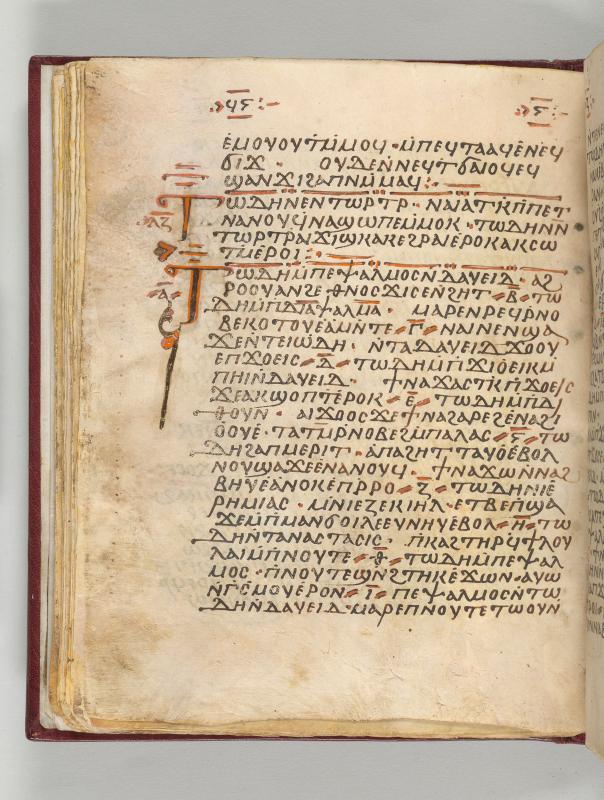 ϥⲋ ⲋ
ⲉⲙⲟⲩⲟⲩⲧⲓⲙⲟⲥ ⲙⲡⲉϥⲧⲁⲁϥⲉⲛⲉϥ
ϭⲓϫ · ⲟⲩⲇⲉⲛⲛⲉϥⲧⲃⲁⲓⲟϥⲉϥ
ϣⲁⲛϫⲓϩⲁⲡⲛⲙⲙⲁϥ
ⲗⲍ
ⲧⲱⲇⲏⲛⲉⲛⲧⲱⲣⲧⲣ · ⲛⲁⲓⲁⲧⲕⲡⲡⲉⲧ
ⲛⲁⲛⲟⲩϥⲛⲁϣⲱⲡⲉⲙⲙⲟⲕ · ⲧⲱⲇⲏⲛⲛ
ⲧⲱⲣⲧⲣⲁⲓϫⲓϣⲕⲁⲕⲉϩⲣⲁⲓⲉⲣⲟⲕⲁⲕⲥⲱ
ⲧⲙⲉⲣⲟⲓ
ⲁ
ⲧⲱⲇⲏⲙⲡⲉⲯⲁⲗⲙⲟⲥⲛⲇⲁⲩⲉⲓⲇ · ⲁϩ
ⲣⲟⲟⲩⲁⲛϩⲉⲑⲛⲟⲥϫⲓⲥⲉⲛϩⲏⲧ ⲃ ⲧⲱ
ⲇⲏⲙⲡⲇⲓⲁⲯⲁⲗⲙⲁ · ⲙⲁⲣⲉⲛⲣⲉϥⲣⲛⲟ
ⲃⲉⲕⲟⲧⲟⲩⲉⲁⲙⲛⲧⲉ ⲅ ⲛⲁⲓⲛⲉⲛϣⲁ
ϫⲉⲛⲧⲉⲓⲱⲇⲏ · ⲛⲧⲁⲇⲁⲩⲉⲓⲇϫⲟⲟⲩ
ⲉⲡϫⲟⲉⲓⲥ ⲇ ⲧⲱⲇⲏⲙⲡϫⲓⲟⲉⲓⲕⲙ
ⲡⲏⲓⲛⲇⲁⲩⲉⲓⲇ · ϯⲛⲁϫⲁⲥⲧⲕⲡϫⲟⲉⲓⲥ
ϫⲉⲁⲕϣⲟⲡⲧⲉⲣⲟⲕ ⲉ ⲧⲱⲇⲏⲙⲡⲇⲓ
ⲑⲟⲩⲛ · ⲁⲓϫⲟⲟⲥϫⲉϯⲛⲁϩⲁⲣⲉϩⲉⲛⲁϩⲓ
ⲟⲟⲩⲉ · ⲧⲁⲧⲙⲣⲛⲟⲃⲉϩⲙⲡⲁⲗⲁⲥ ⲋ ⲧⲱ
ⲇⲏϩⲁⲡⲙⲉⲣⲓⲧ · ⲁⲡⲁϩⲏⲧⲧⲁⲩⲟⲉⲃⲟⲗ
ⲛⲟⲩϣⲁϫⲉⲉⲛⲁⲛⲟⲩϥ · ϯⲛⲁϫⲱⲛⲛⲁϩ
ⲃⲏⲩⲉⲁⲛⲟⲕⲉⲡⲣⲣⲟ ⲍ ⲧⲱⲇⲏⲛⲓⲉ
ⲣⲏⲙⲓⲁⲥ · ⲙⲛⲓⲉⲍⲉⲕⲓⲏⲗ · ⲉⲧⲃⲉⲡϣⲁ
ϫⲉⲙⲡⲙⲁⲛϭⲟⲓⲗⲉⲉⲩⲛⲏⲩⲉⲃⲟⲗ ⲏ ⲧⲱ
ⲇⲏⲛⲧⲁⲛⲁⲥⲧⲁⲥⲓⲥ · ⲡⲕⲁϩⲧⲏⲣϥϯⲗⲟⲩ
ⲗⲁⲓⲙⲡⲛⲟⲩⲧⲉ ⲑ ⲧⲱⲇⲏⲙⲡⲉⲯⲁⲗ
ⲙⲟⲥ · ⲡⲛⲟⲩⲧⲉϣⲛϩⲧⲏⲕⲉϫⲱⲛ · ⲁⲩⲱ
ⲛⲅⲥⲙⲟⲩⲉⲣⲟⲛ ⲓ ⲡⲉⲯⲁⲗⲙⲟⲥⲛⲧⲱ
ⲇⲏⲛⲇⲁⲩⲉⲓⲇ · ⲙⲁⲣⲉⲡⲛⲟⲩⲧⲉⲧⲱⲟⲩⲛ